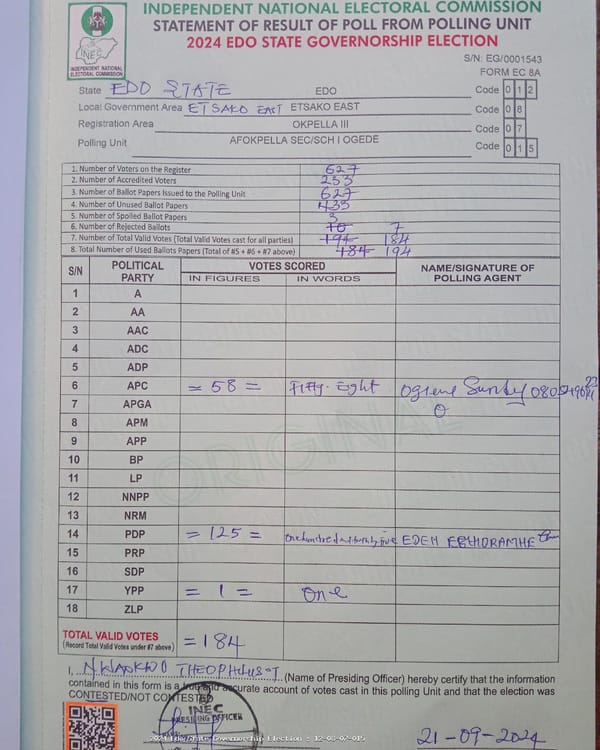 INDEPENDENT NATIONAL ELECTORAL COMMISSION
STATEMENT OF RESULT OF POLL FROM POLLING UNIT
2024 EDO STATE GOVERNORSHIP ELECTION
INEC
INDEPENDENT NATIONAL ELECTORAL COMMISSION
S/N: EG/0001543
FORM EC 8A
State EDO STATE EDO Code 0 1 2
Local Government Area ETSAKO EAST ETSAKO EAST Code 0 8
Registration Area OKPELLA III Code 0 7
Polling Unit AFOKPELLA SEC/SCH I OGEDE Code 0 1 5
1. Number of Voters on the Register 627
2. Number of Accredited Voters 253
3. Number of Ballot Papers Issued to the Polling Unit 627
4. Number of Unused Ballot Papers 433
5. Number of Spoiled Ballot Papers 3
6. Number of Rejected Ballots 10 7
7. Number of Total Valid Votes (Total Valid Votes cast for all parties) 194 184
8. Total Number of Used Ballots Papers (Total of #5 + #6 + #7 above) 184 194
S/N POLITICAL PARTY VOTES SCORED NAME/SIGNATURE OF POLLING AGENT
IN FIGURES IN WORDS
1 A
2 AA
3 AAC
4 ADC
5 ADP
6 APC = 58 = Fifty-Eight Ogiene Sunday
7 APGA
8 APM
9 APP
10 BP
11 LP
12 NNPP
13 NRM
14 PDP = 125 = One hundred and twenty five EDEH
15 PRP
16 SDP
17 YPP = 1 = One
18 ZLP
TOTAL VALID VOTES = 184
(Record Total Valid Votes under #7 above)
I, NWAOKWO THEOPHILUS T (Name of Presiding Officer) hereby certify that the information
contained in this form is a true and accurate account of votes cast in this polling Unit and that the election was
CONTESTED/NOT CONTESTED
INEC
PRESIDING OFFICER
2024 Edo State Governorship Election : 12-08-07-015
21-09-2024
ORIGINAL